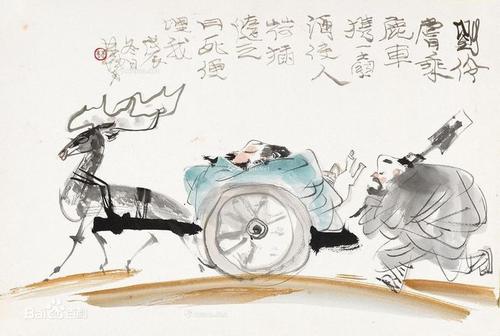 劉伶
嘗乘
鹿車
携一壺
酒使人
荷插
遂之
曰死便
埋我
Baidu百科